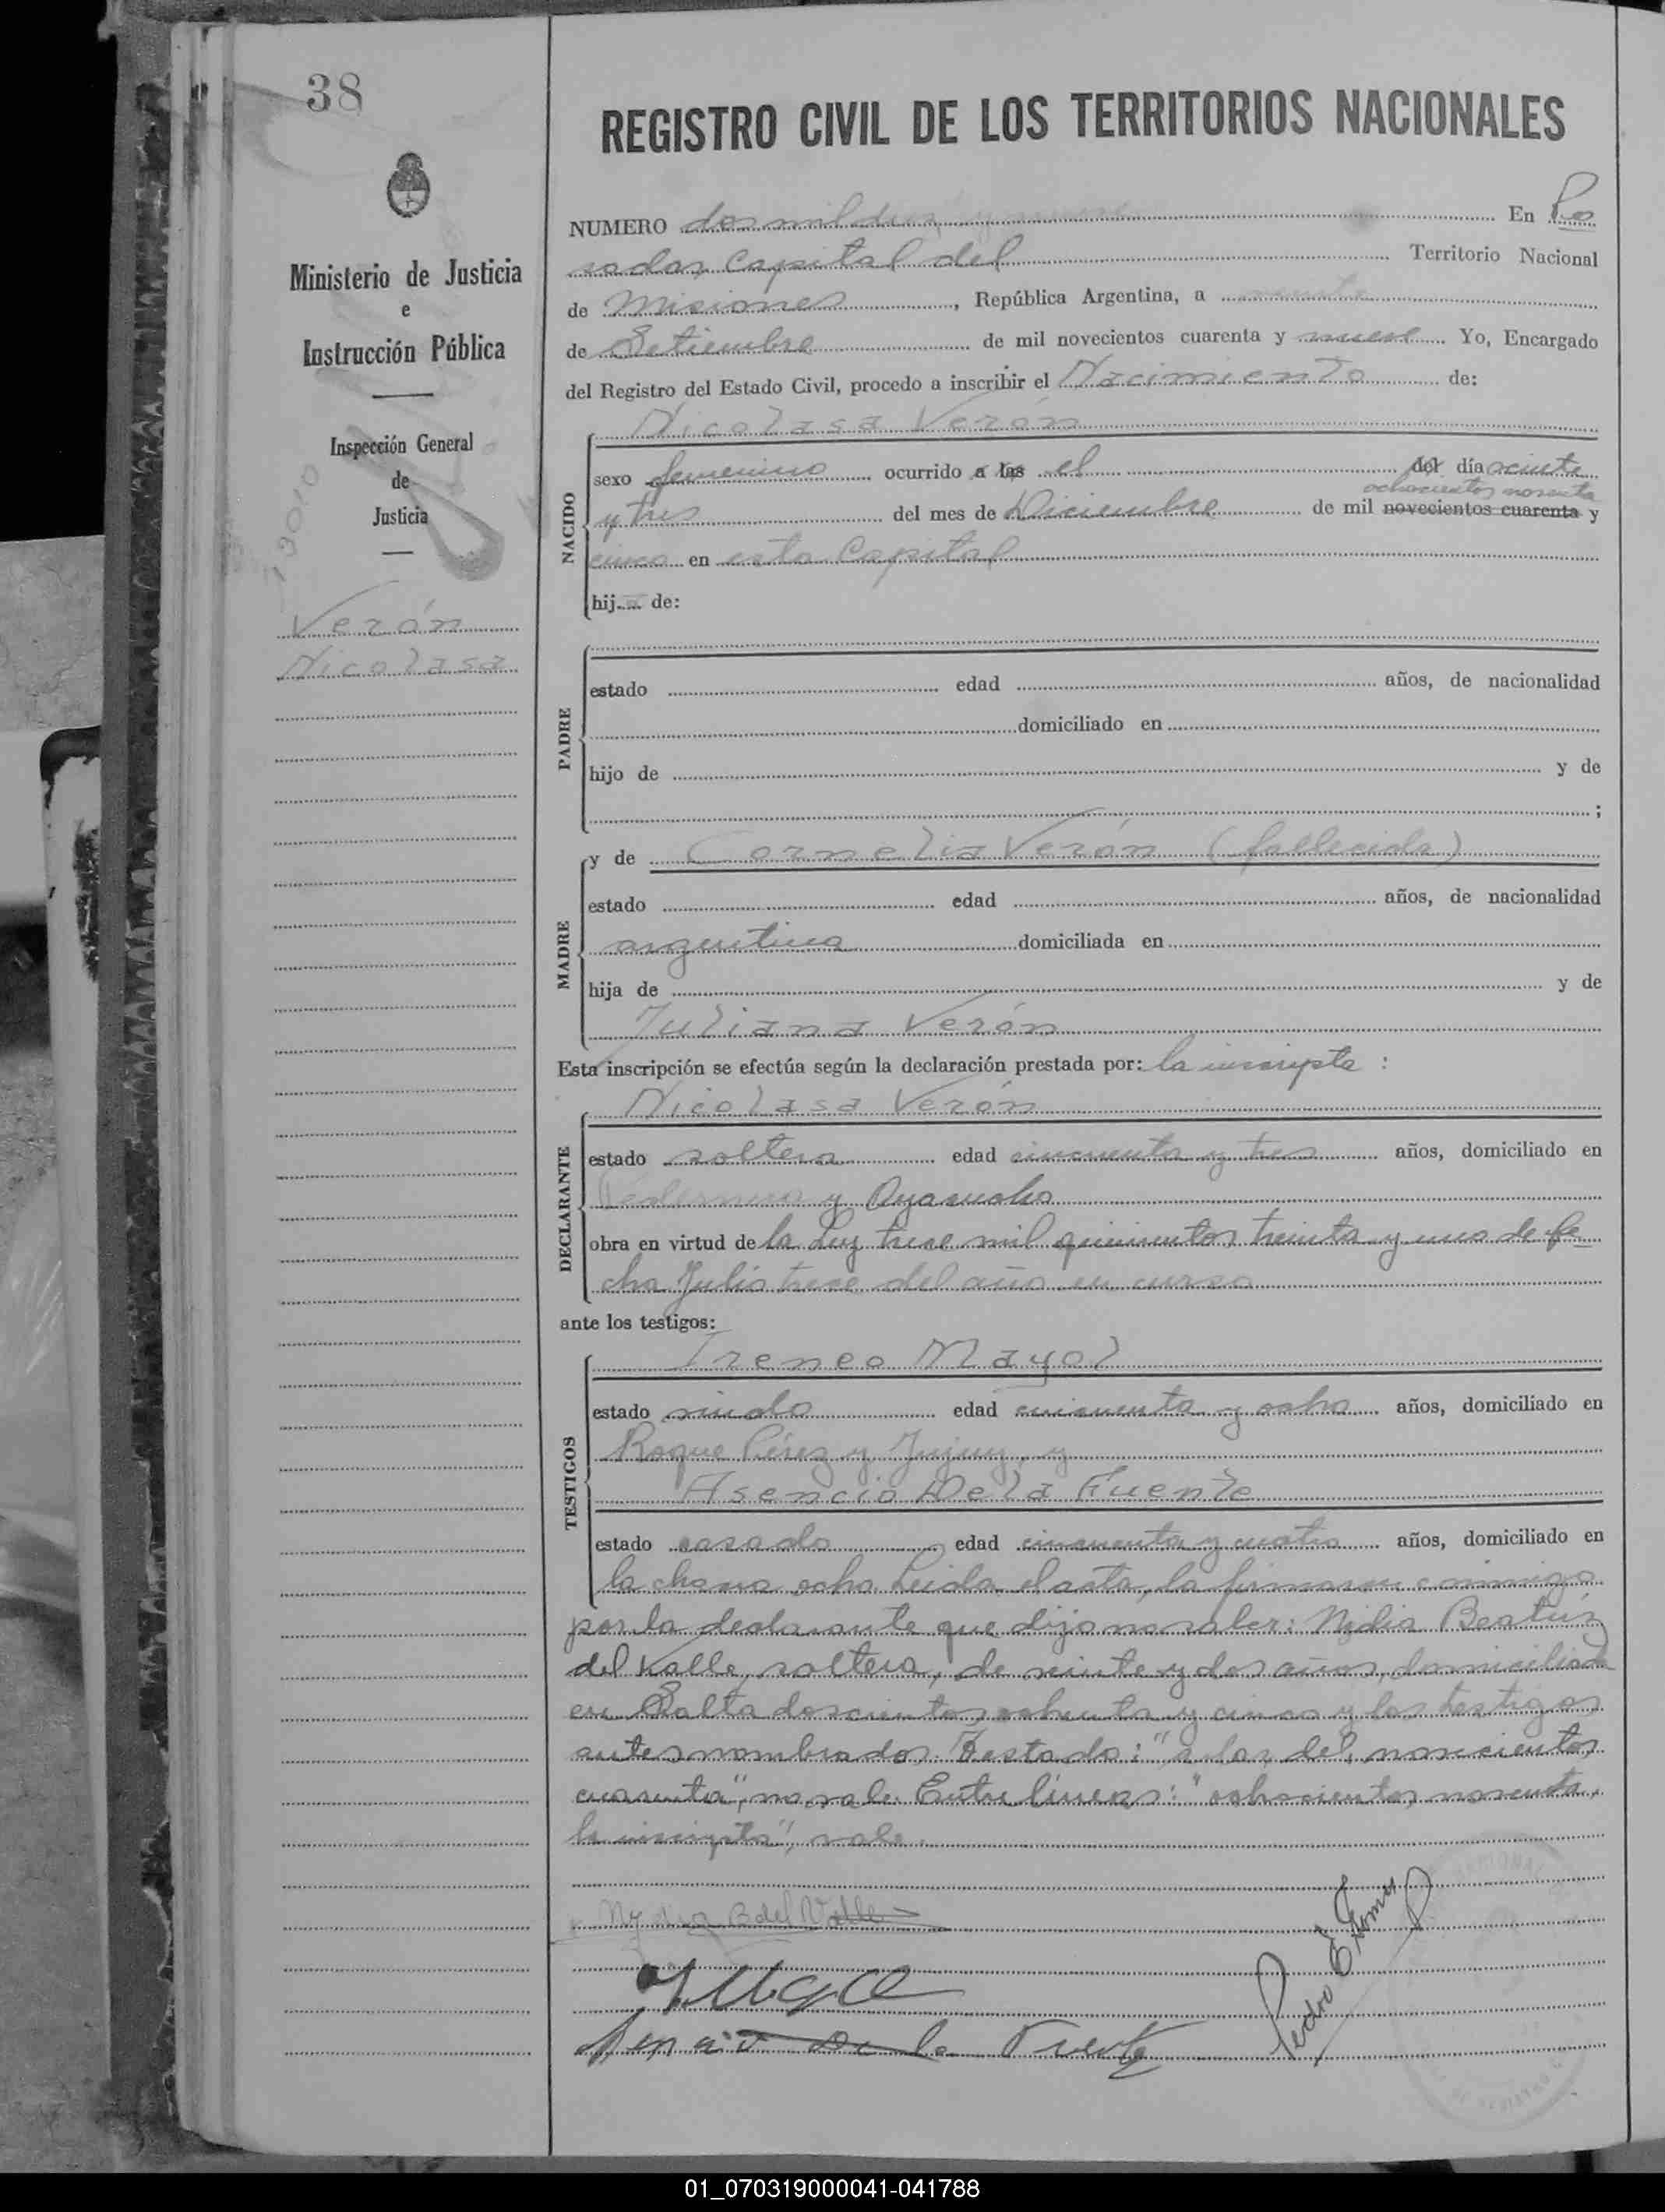 38
REGISTRO CIVIL DE LOS TERRITORIOS NACIONALES
Ministerio de Justicia
e
Instrucción Pública
Inspección General
de
Justicia
Verón
Nicolasa
NUMERO dos mil diez y nueve En Po
sadas, Capital del Territorio Nacional
de Misiones, República Argentina, a veinte
de Setiembre de mil novecientos cuarenta y nueve Yo, Encargado
del Registro del Estado Civil, procedo a inscribir el Nacimiento de:
NACIDO
Nicolasa Verón
sexo femenino ocurrido a las el del día veinte
ochocientos noventa
y tres del mes de Diciembre de mil novecientos cuarenta y
cinco en esta Capital
hija de:
PADRE
estado edad años, de nacionalidad
domiciliado en
hijo de y de
;
MADRE
y de Cornelia Verón (fallecida)
estado edad años, de nacionalidad
argentina domiciliada en
hija de y de
Juliana Verón
Esta inscripción se efectúa según la declaración prestada por: la inscripta :
DECLARANTE
Nicolasa Verón
estado soltera edad cincuenta y tres años, domiciliado en
y Ayacucho
obra en virtud de la Ley trece mil quinientos treinta y uno de fe
cha Julio trece del año en curso
ante los testigos:
TESTIGOS
Ireneo Mayol
estado viudo edad cincuenta y ocho años, domiciliado en
Roque Pérez y Jujuy, y
Asencio De la Fuente
estado casado edad cincuenta y cuatro años, domiciliado en
la chacra ocho. Leida el acta, la firmaron conmigo
por la declarante que dijo no saber: Nydia Beatriz
del Valle, soltera, de veinte y dos años, domiciliada
en Salta doscientos ochenta y cinco y los testigos
antes nombrados. Testado: "a las, del, novecientos
cuarenta", no vale. Entre lineas: "ochocientos noventa,
la inscripta", vale.
Nydia B del Valle
Asencio De la Fuente
Pedro E Gomez
01_070319000041-041788